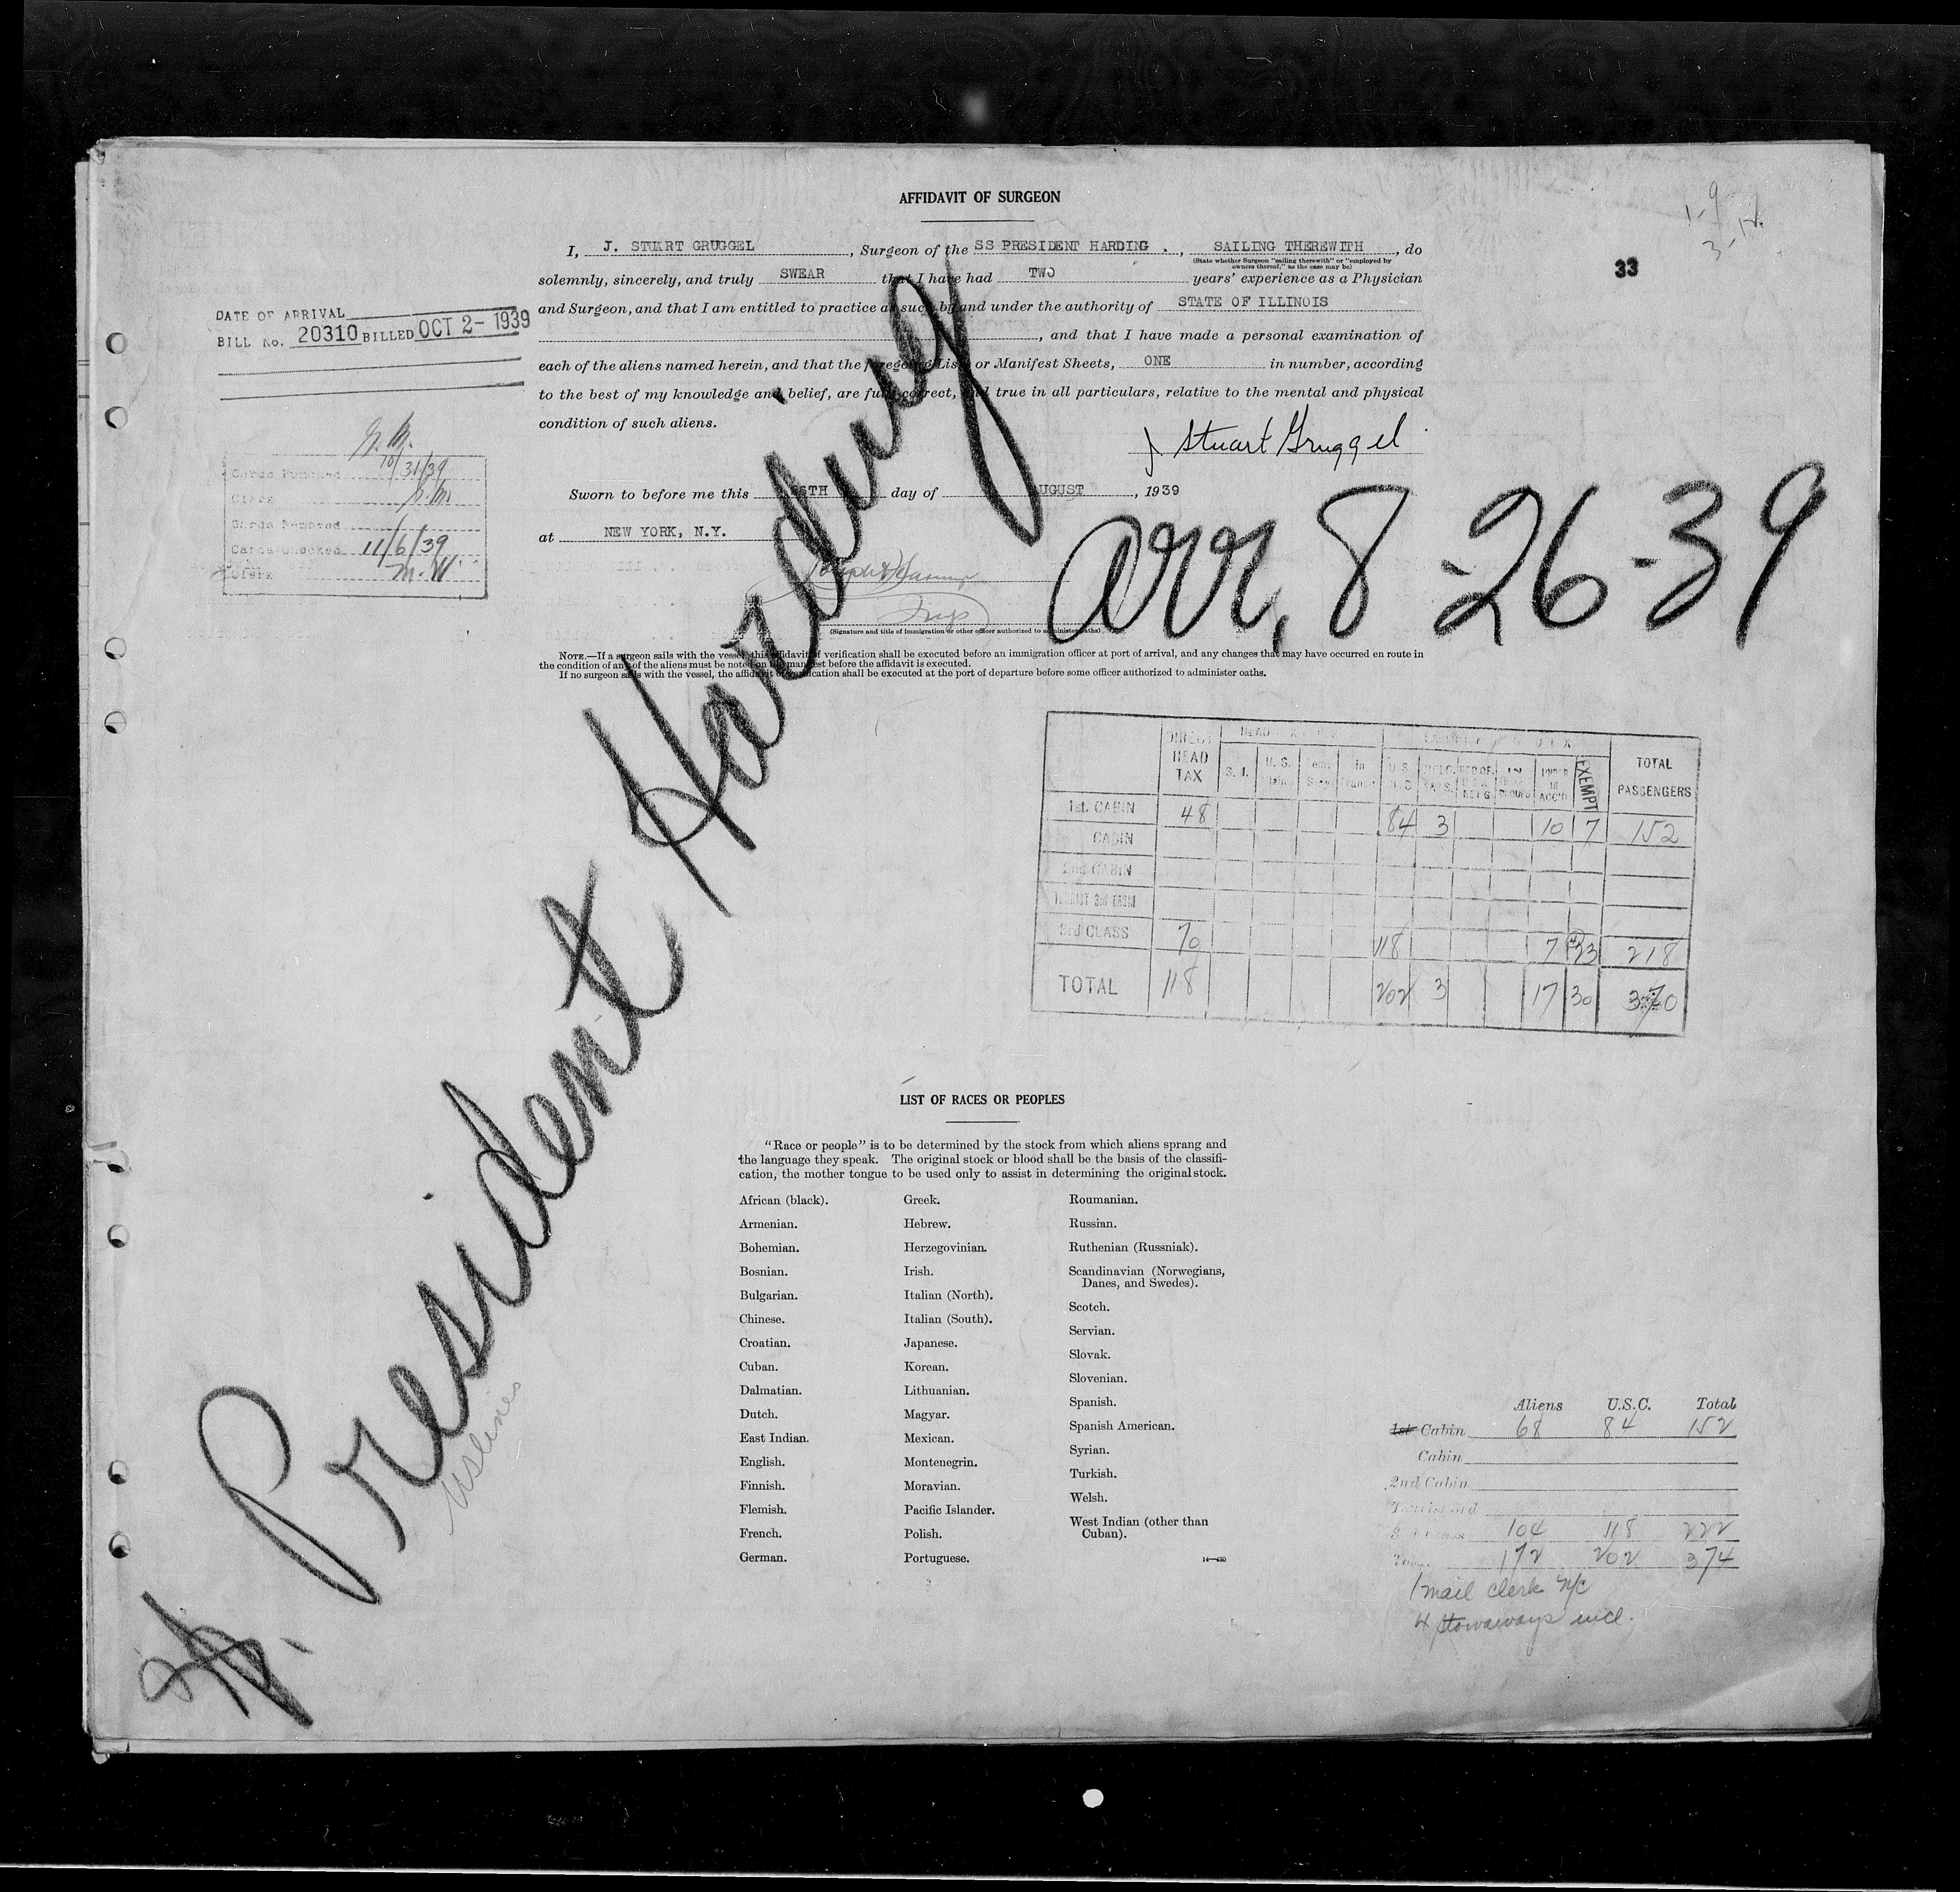 AFFIDAVIT OF SURGEON
I, J. STUART GRUGGEL, Surgeon of the SS PRESIDENT HARDING ., SAILING THEREWITH, do
(State whether Surgeon "sailing therewith" or "employed by owners thereof," as the case may be)
33
solemnly, sincerely, and truly SWEAR that I have had TWO years' experience as a Physician
and Surgeon, and that I am entitled to practice as such by and under the authority of STATE OF ILLINOIS
, and that I have made a personal examination of
each of the aliens named herein, and that the foregoing Lists or Manifest Sheets, ONE in number, according
to the best of my knowledge and belief, are full, correct, and true in all particulars, relative to the mental and physical
condition of such aliens.
J Stuart Gruggel
Sworn to before me this 26TH day of AUGUST, 1939
at NEW YORK, N.Y.
Insp
(Signature and title of immigration or other officer authorized to administer oaths)
NOTE.—If a surgeon sails with the vessel, this affidavit of verification shall be executed before an immigration officer at port of arrival, and any changes that may have occurred en route in
the condition of any of the aliens must be noted on the manifest before the affidavit is executed.
If no surgeon sails with the vessel, the affidavit of verification shall be executed at the port of departure before some officer authorized to administer oaths.
DATE OF ARRIVAL
BILL No. 20310 BILLED OCT 2- 1939
10/31/39
Clerk
Cards Removed
Cards Checked 11/6/39
Clerk M.W.
President Harding
arr. 8-26-39
US Lines
DIRECT HEAD TAX
U.S.
UNDER 16 ACC'D
EXEMPT
TOTAL PASSENGERS
1st. CABIN 48 84 3 10 7 152
CABIN
2nd CABIN
TOURIST 3rd CABIN
3rd CLASS 70 118 7 23 218
TOTAL 118 202 3 17 30 370
LIST OF RACES OR PEOPLES
"Race or people" is to be determined by the stock from which aliens sprang and
the language they speak. The original stock or blood shall be the basis of the classifi-
cation, the mother tongue to be used only to assist in determining the original stock.
African (black).
Armenian.
Bohemian.
Bosnian.
Bulgarian.
Chinese.
Croatian.
Cuban.
Dalmatian.
Dutch.
East Indian.
English.
Finnish.
Flemish.
French.
German.
Greek.
Hebrew.
Herzegovinian.
Irish.
Italian (North).
Italian (South).
Japanese.
Korean.
Lithuanian.
Magyar.
Mexican.
Montenegrin.
Moravian.
Pacific Islander.
Polish.
Portuguese.
Roumanian.
Russian.
Ruthenian (Russniak).
Scandinavian (Norwegians,
Danes, and Swedes).
Scotch.
Servian.
Slovak.
Slovenian.
Spanish.
Spanish American.
Syrian.
Turkish.
Welsh.
West Indian (other than
Cuban).
Aliens U.S.C. Total
1st Cabin 68 84 152
Cabin
2nd Cabin
Tourist 3rd
104 118 222
172 202 374
1 mail clerk N/C
4 stowaways incl.